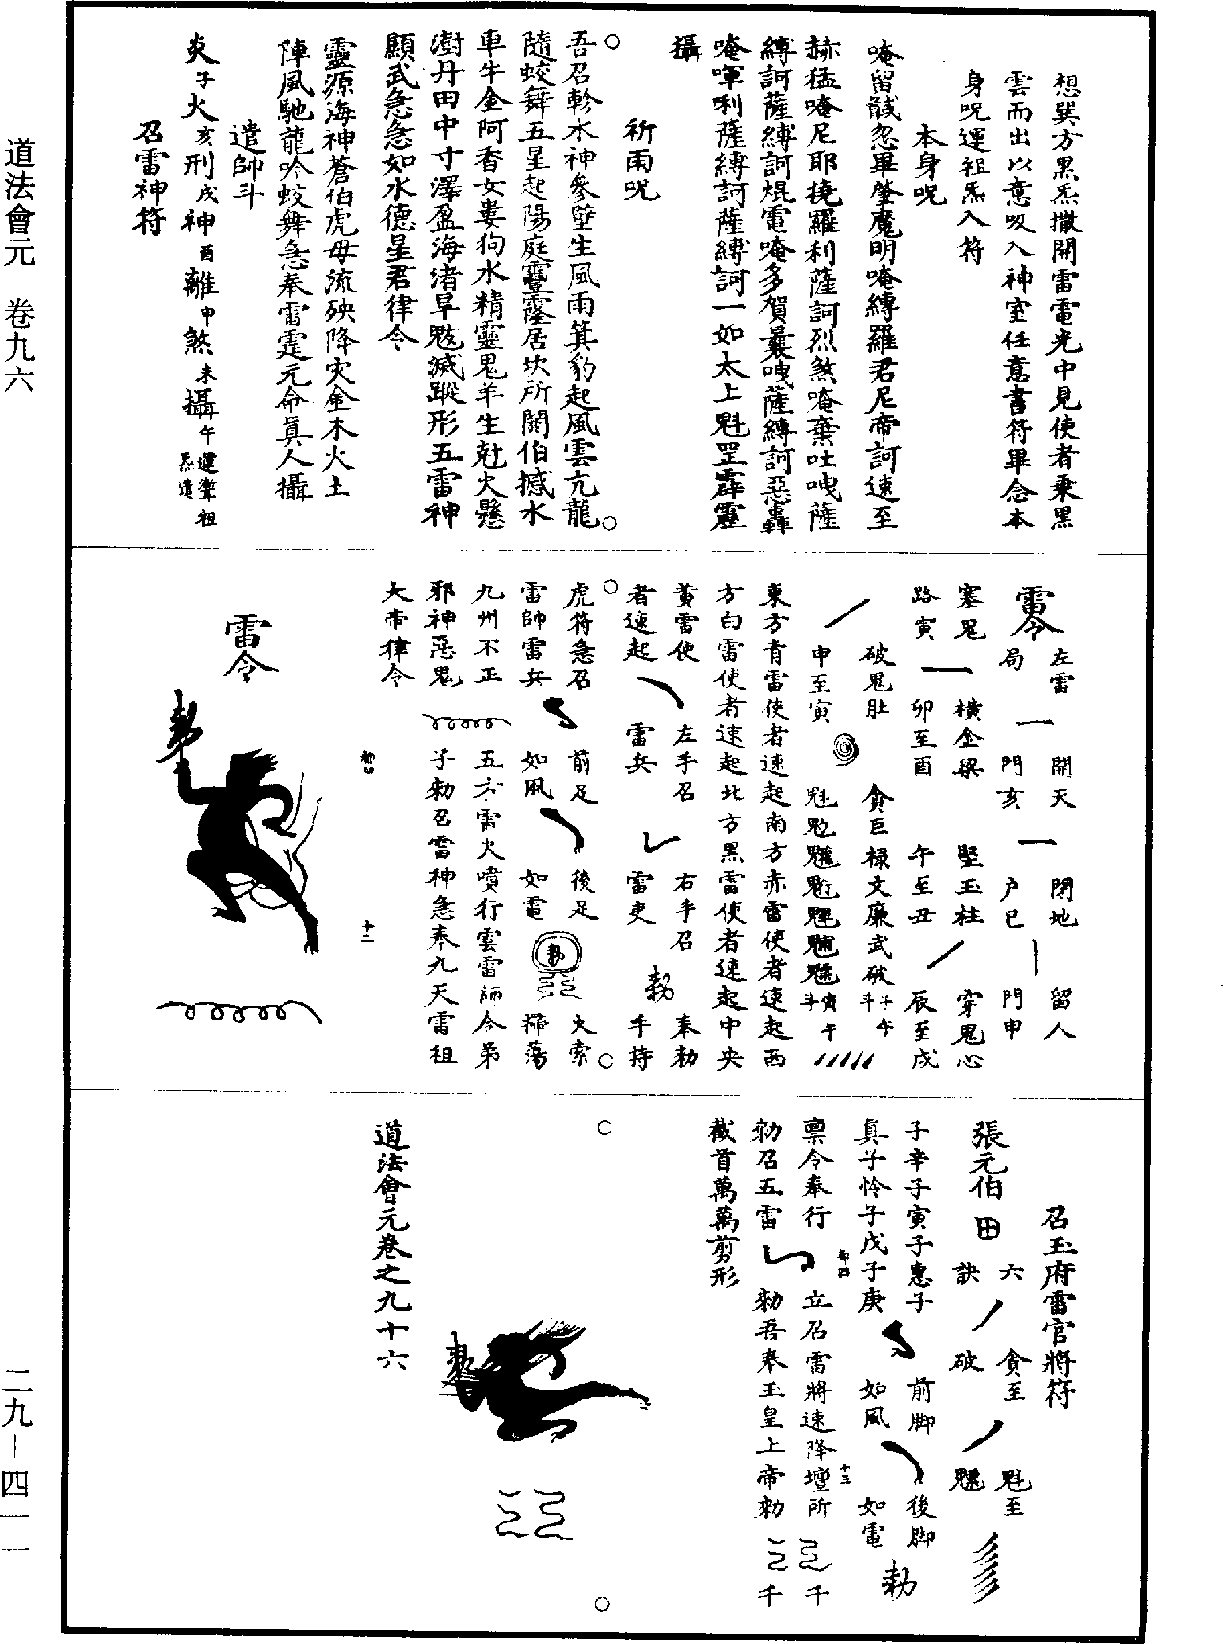 想巽方黑炁撒開雷電光中見使者乘黑
雲而出以意吸入神室任意書符畢念本
身呪運祖炁入符
本身呪
唵留馘忽畢肇魔明唵縛羅君尼帝訶速至
赫猛唵尼耶撓羅利薩訶烈煞唵棄吐嚗薩
縛訶薩縛訶焜電唵多賀曩嚗薩縛訶惡轟
唵喗唎薩縛訶薩縛訶一如太上魁罡霹靂
攝
祈雨呪
吾召軫水神參壁生風雨箕豹起風雲亢龍
隨蛟舞五星起陽庭豐隆居坎所開伯撼水
車牛金阿香女婁狗水精靈鬼羊生尅火懸
澍丹田中寸澤盈海渚旱魃滅蹤形五雷神
顯武急急如水德星君律令
靈源海神蒼伯虎母流殃降灾金木火土
陣風馳龍吟蛟舞急奉雷霆元命真人攝
遣帥斗
炎子火亥刑戌神酉離申煞未攝午運聚祖炁遣
召雷神符
雷令
左雷局
開天門亥
閉地户巳
留人門申
塞鬼路寅
橫金梁卯至酉
堅玉柱午至丑
穿鬼心辰至戌
破鬼肚申至寅
貪巨祿文廉武破子午斗
魁䰢魓𩲃𩵄䰣魒寅午斗
東方青雷使者速起南方赤雷使者速起西
方白雷使者速起北方黑雷使者速起中央
黃雷使者速起
左手召雷兵
右手召雷吏
勑
奉勑手持
虎符急召雷帥雷兵
前足如風
後足如電
勑
火索掃蕩
九州不正
邪神惡鬼
五方雷火噴行雲雷師令弟
子勑召雷神急奉九天雷祖
大帝律令
勑四
十二
雷令
勑
召玉府雷官將符
張元伯
田
六訣
貪至破
魁至魒
子辛子寅子惠子
真子怜子戊子庚
前脚如風
後脚如電
勑
稟令奉行
立召雷將速降壇所
千
勑召五雷
勑吾奉玉皇上帝勑
千
截首萬萬剪形
十三
勑
道法會元卷之九十六
道法會元 卷九六
二九－四一一